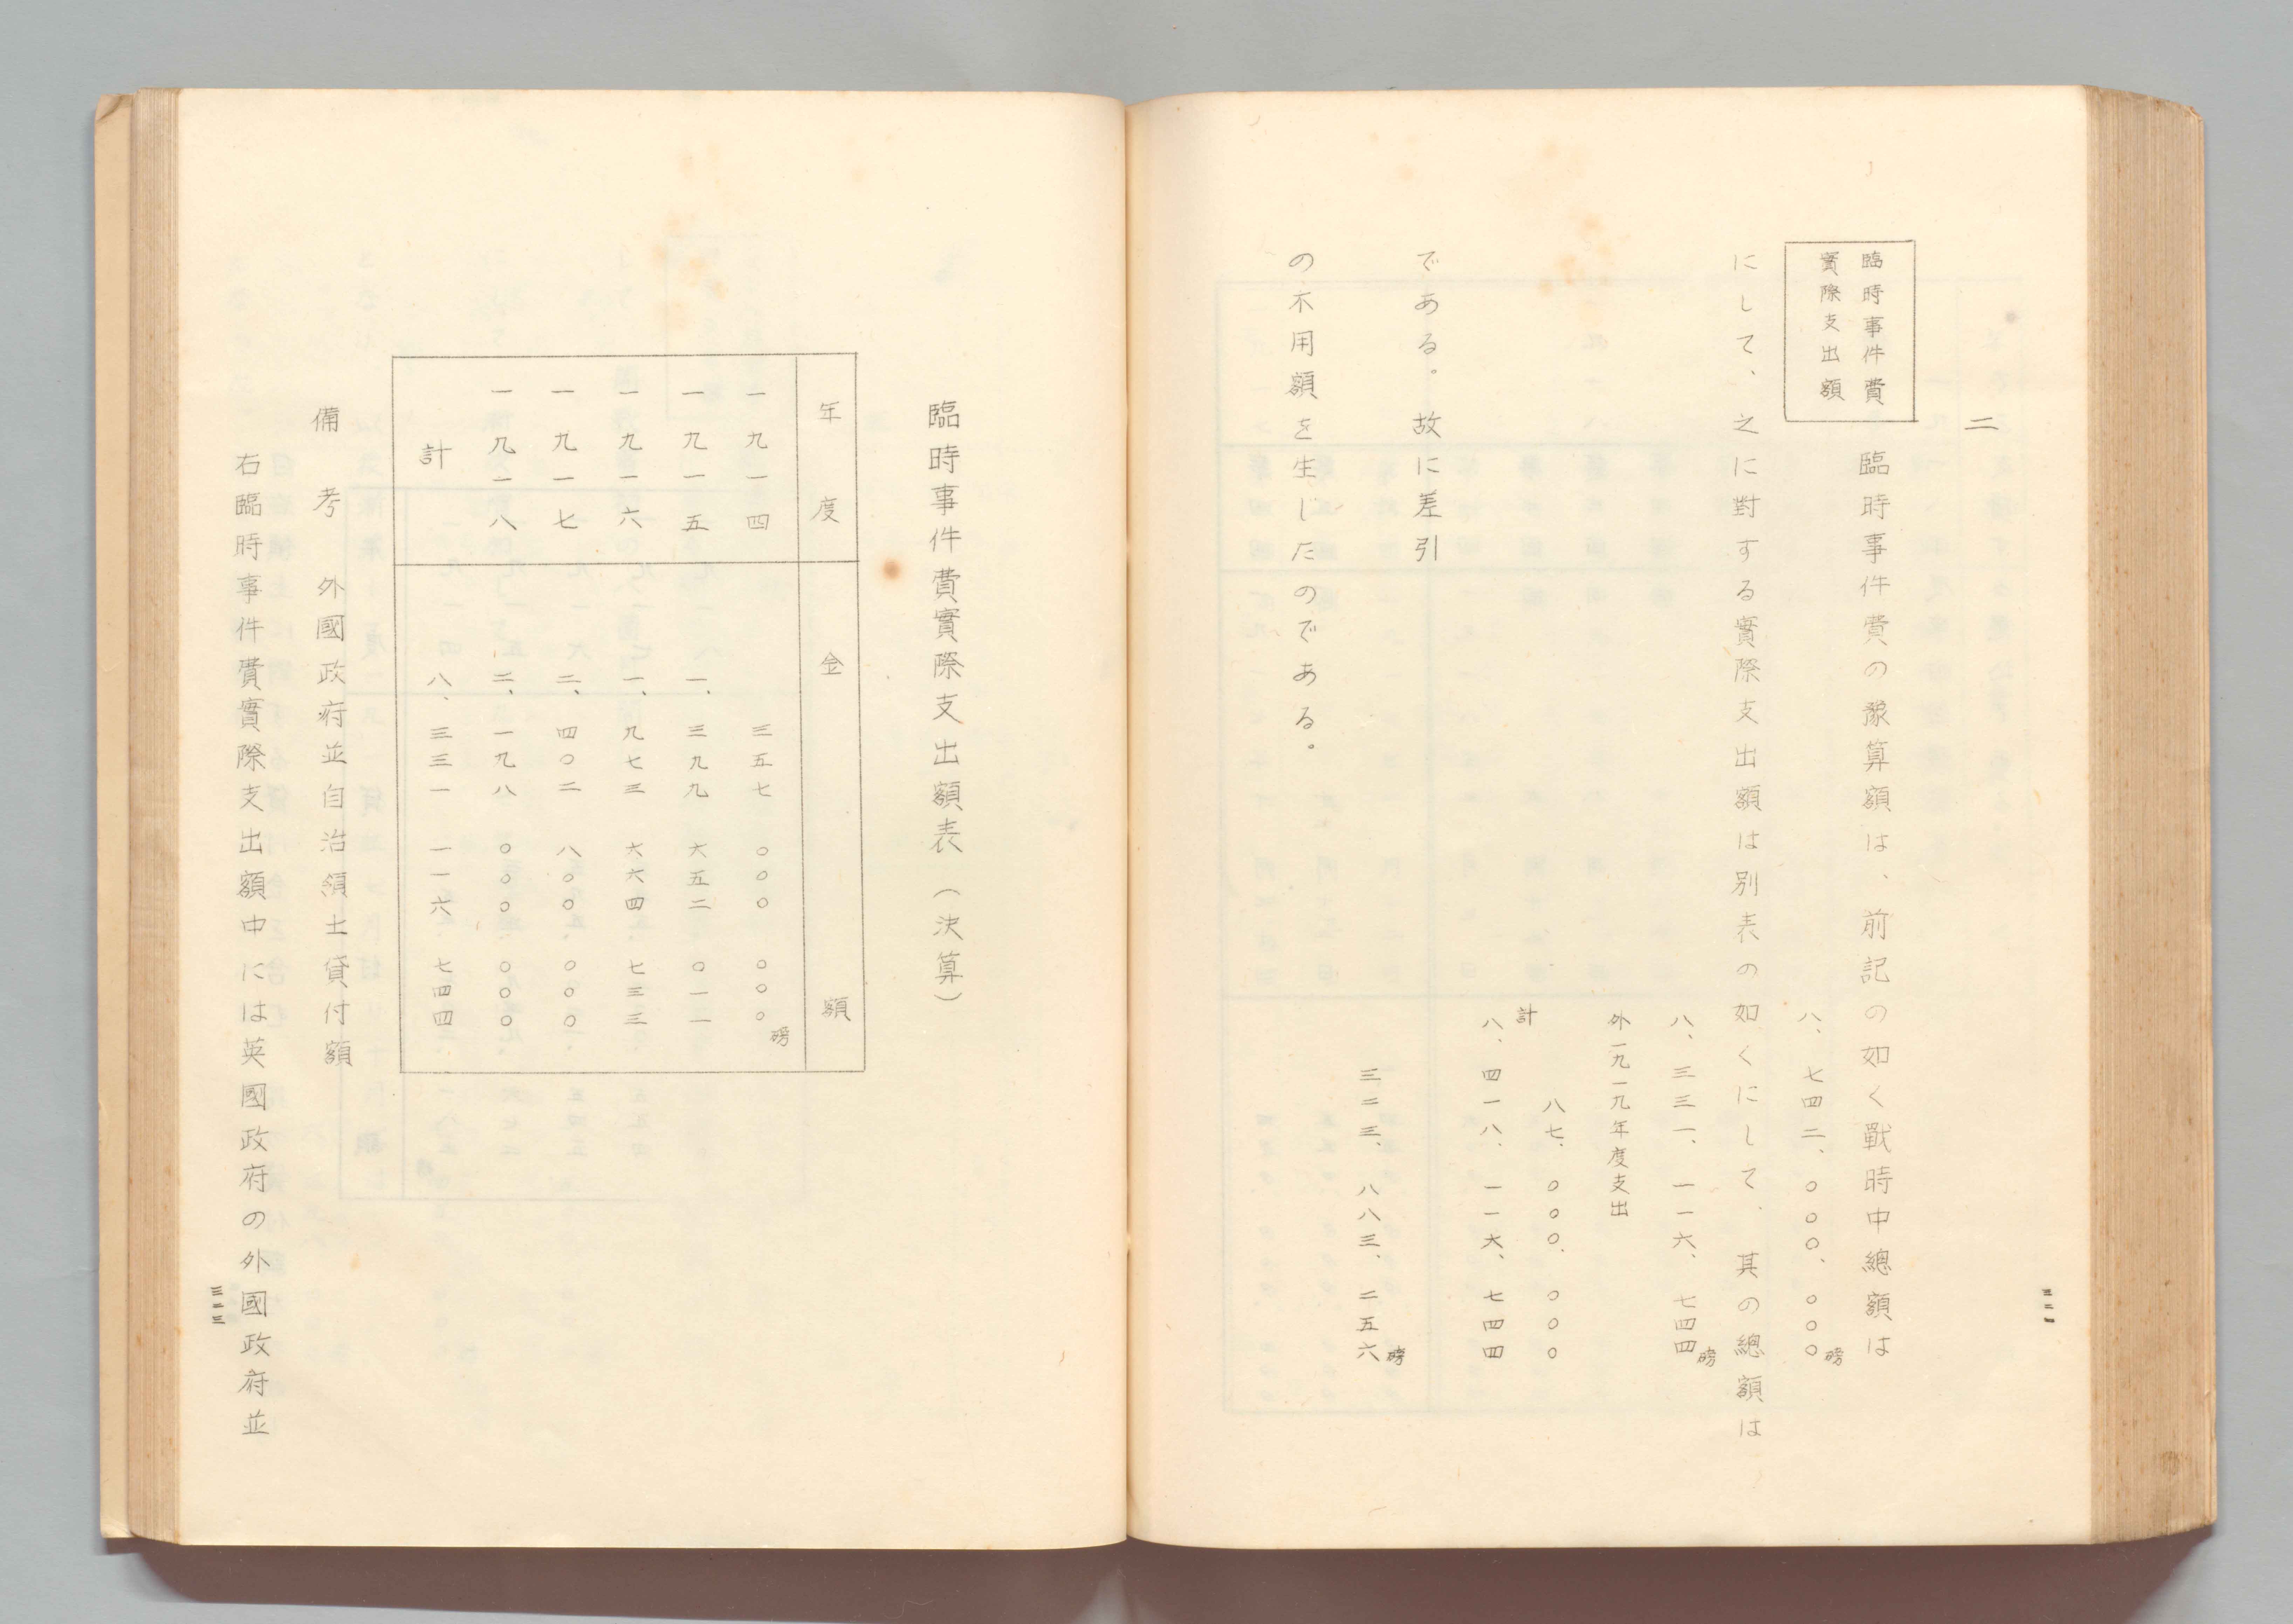 二
臨時事件費
實際支出額
臨時事件費の豫算額は、前記の如く戰時中總額は
八、七四二、〇〇〇、〇〇〇磅
にして、之に對する實際支出額は別表の如くにして、其の總額は
八、三三一、一一六、七四四磅
外一九一九年度支出
八七、〇〇〇、〇〇〇
計
八、四一八、一一六、七四四
である。故に差引
三二三、八八三、二五六磅
の不用額を生じたのである。
三二二
臨時事件費實際支出額表（決算）
年度 金額
一九一四 三五七 〇〇〇 〇〇〇磅
一九一五 一、三九九 六五二 〇一一
一九一六 一、九七三 六六四 七三三
一九一七 二、四〇二 八〇〇 〇〇〇
一九一八 二、一九八 〇〇〇 〇〇〇
計 八、三三一 一一六 七四四
備考 外國政府並自治領土貸付額
右臨時事件費實際支出額中には英國政府の外國政府並
三二三